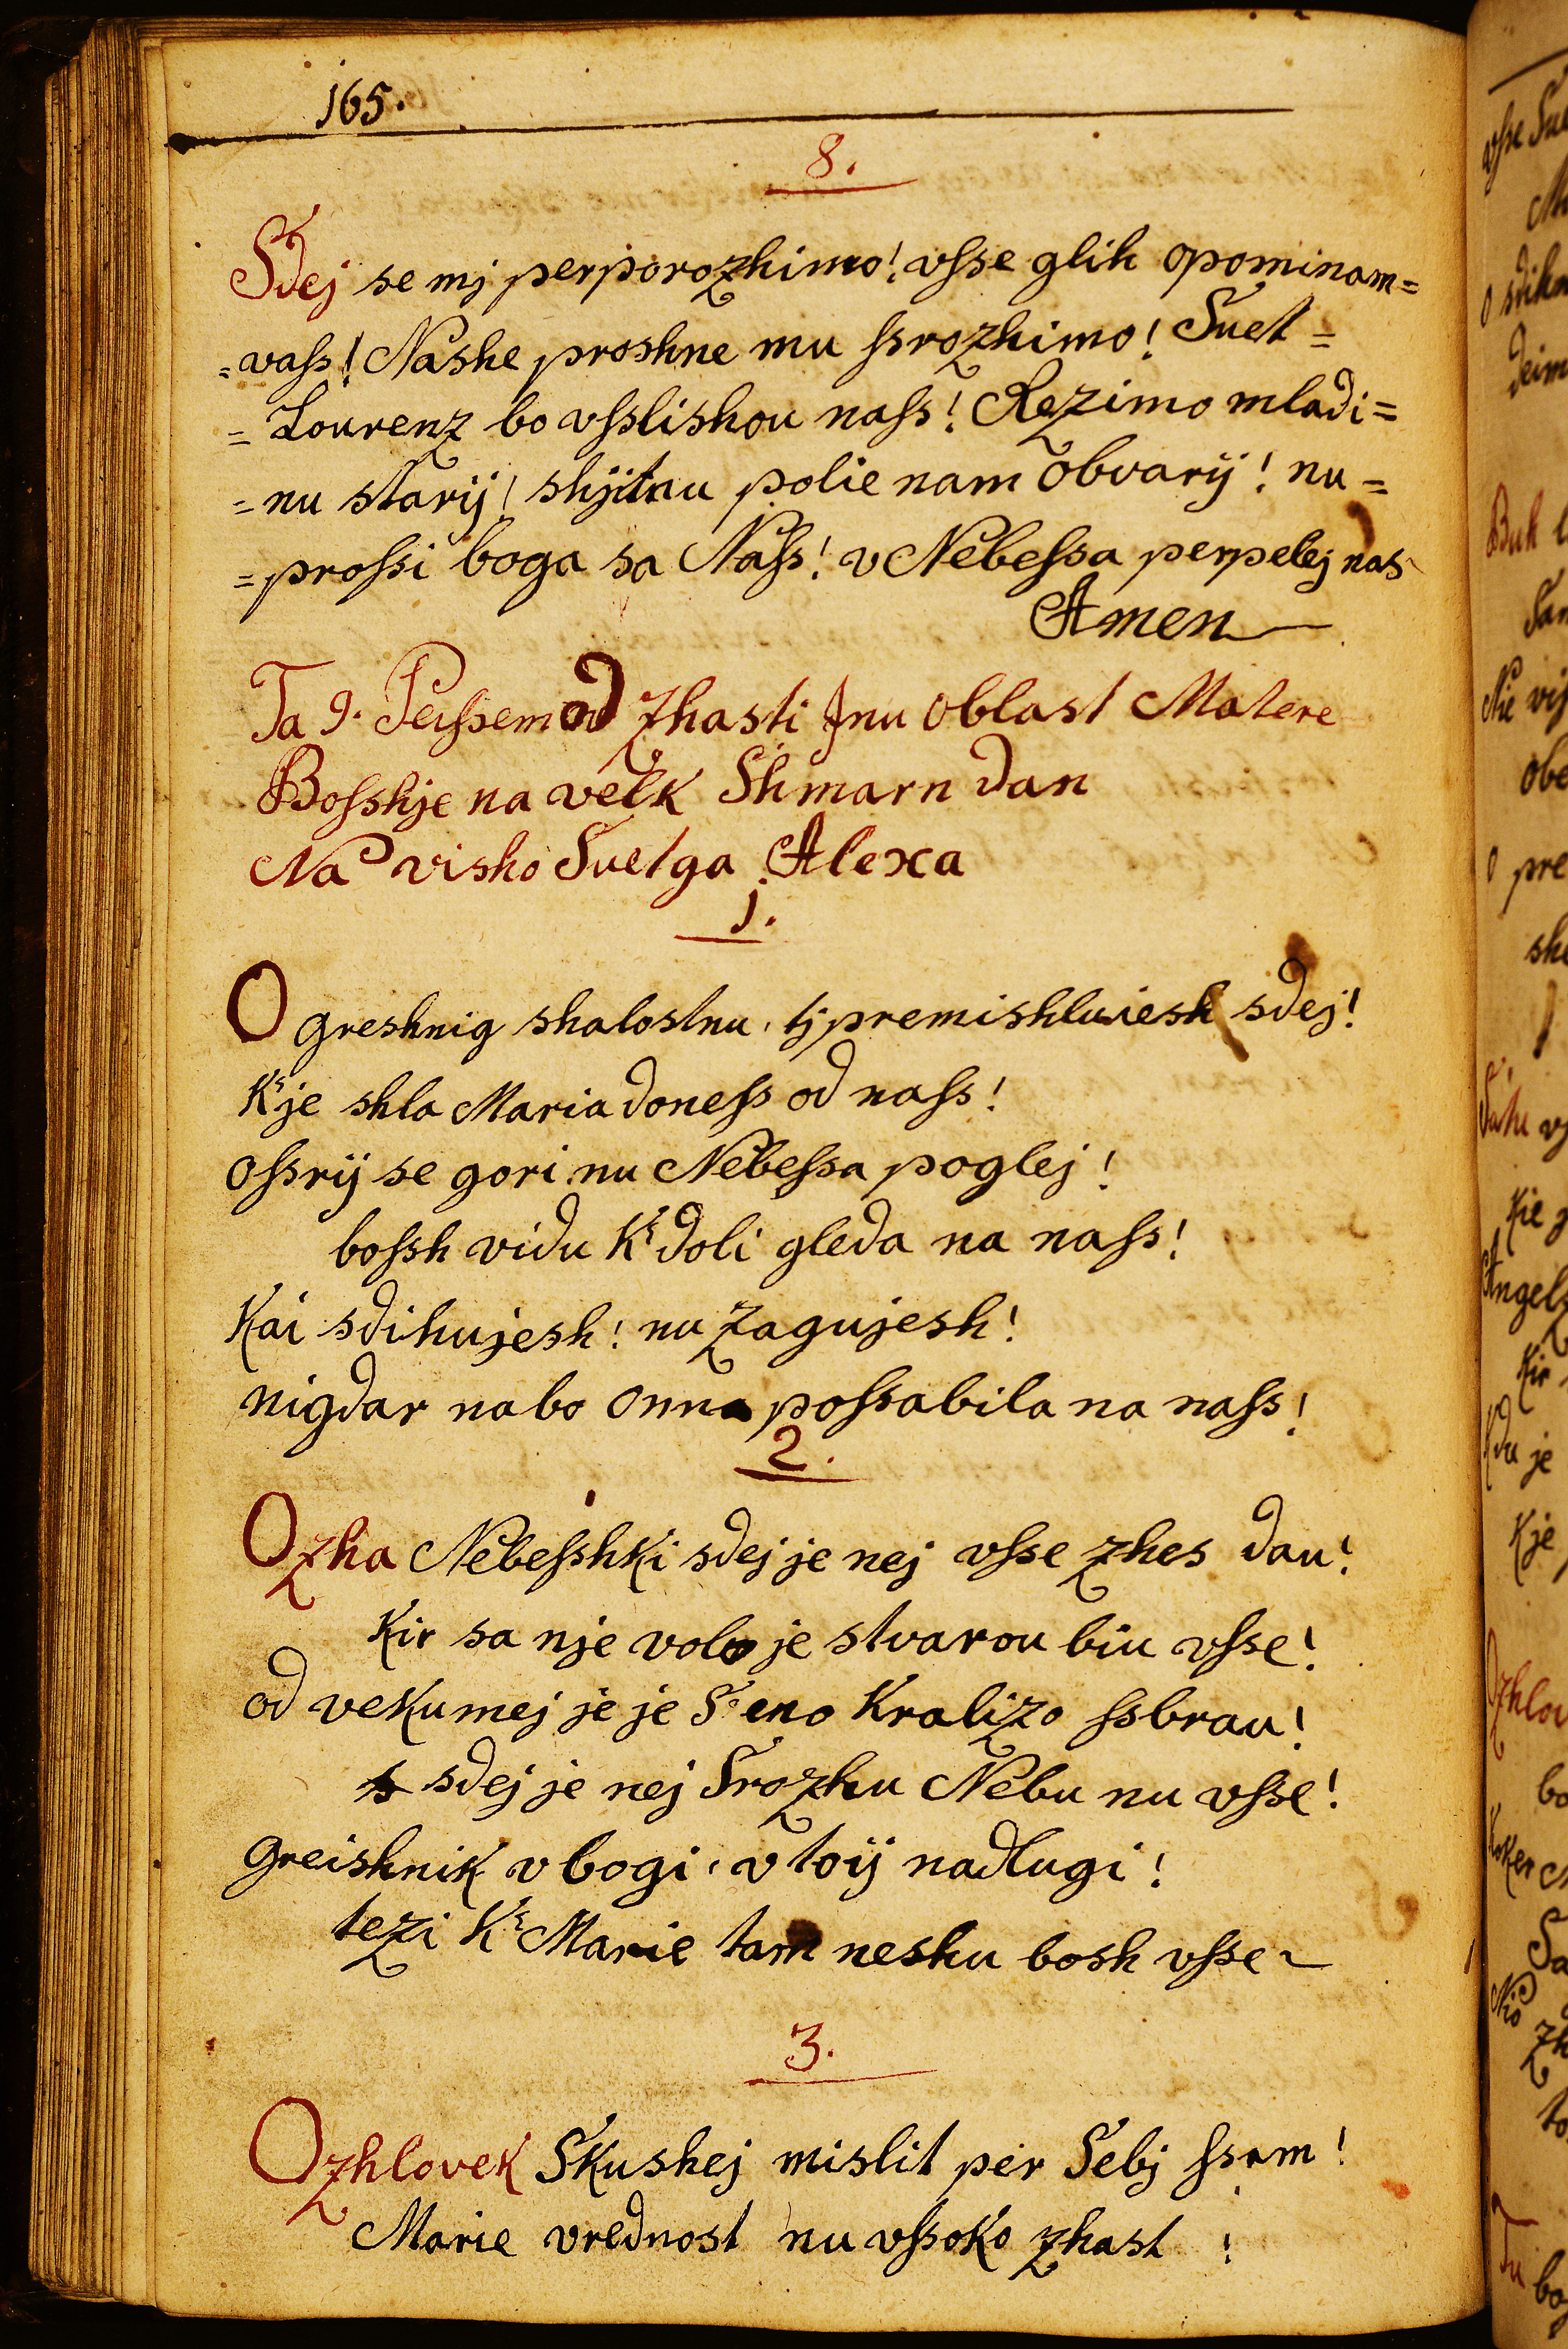 165.
8.
Sdej se mj perporozhimo! vſse glih opominam=
=vaſs! Nashe proshne mu ſsrozhimo! Suet=
=Lourenz bo vſslishou naſs! Rezimo mladi=
=nu starij! shjitnu polie nam obvarij! nu=
=proſsi boga sa Naſs! v Nebeſsa perpelej nas
Amen
Ta 9. Peiſsem od zhasti jnu oblast Matere
Boſshje na velk Shmarn dan
Na visho Suetga Alexa
1.
O greshnig shalostnu, tj premishluiesh sdej!
Kr je shla Maria doneſs od naſs!
oſsrij se gori nu Nebeſsa poglej!
boſsh vidu Kr doli gleda na naſs!
Kai sdihujesh! nu zagujesh!
nigdar nabo onna poſsabila na naſs!
2.
Ozha Nebeſshki sdej je nej vſse zhes dau!
Kir sa nje volo je stvarou biu vſse!
od vekumej je je S: eno Kralizo ſsbrau!
sdej je nej Srozhu Nebu nu vſse!
Greishnik vbogi, v toij nadlugi!
tezi Kr Marie tam neshu bosh vſse
3.
O zhlovek Skushej mislit per Sebj ſsam!
Marie vrednost nu vſsoko zhast!